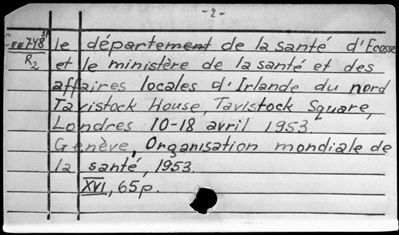 -2-
le département de la santé d'Ecosse
et le ministère de la santé et des
R2
affaires locales d'Irlande du nord
Tavistock House, Tavistock Square,
Londres 10-18 avril 1953.
Genève, Organisation mondiale de
la santé, 1953.
XVI, 65p.